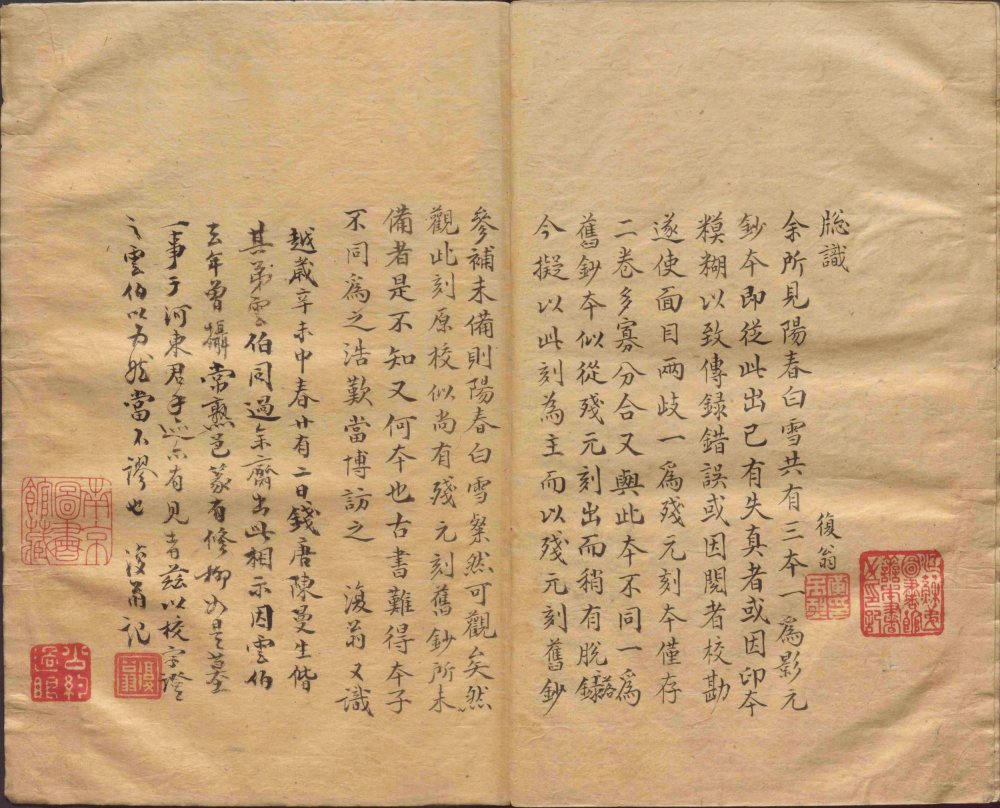 牕識
復翁
余所見陽春白雪共有三本一為影元
鈔本即從此出已有失真者或因印本
糢糊以致傳録錯誤或因閱者校勘
遂使面目兩歧一為殘元刻本僅存
二卷多寡分合又與此本不同一為
舊鈔本似從殘元刻出而稍有脫落
今擬以此刻為主而以殘元刻舊鈔
參補未備則陽春白雪粲然可觀矣然
觀此刻原校似尚有殘元刻舊鈔所未
備者是不知又何本也古書難得本子
不同為之浩歎當博訪之 復翁又識
越歲辛未中春廿有二日錢唐陳曼生偕
其弟雲伯同過余齋出此相示因雲伯
去年曾攝常熟邑篆有修柳如是墓
一事于河東君手迹亦有見者茲以校字證
之雲伯以為然當不謬也 復翁記
南京圖書館藏
復翁